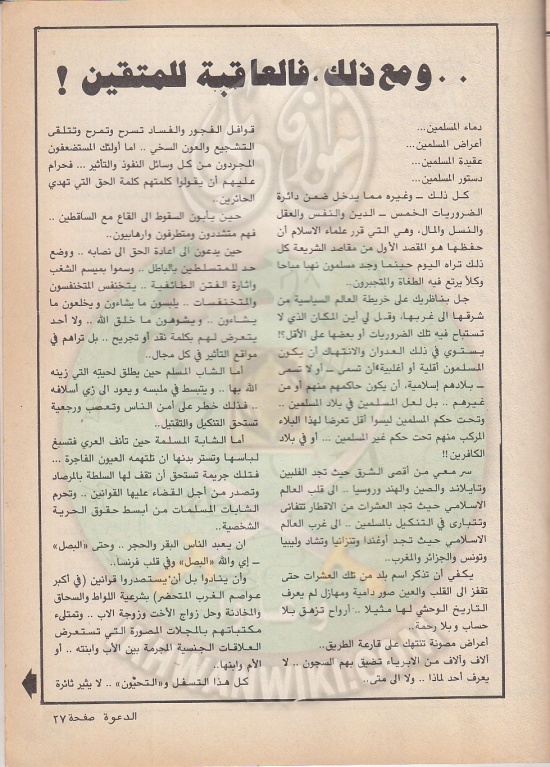 . . ومع ذلك، فالعاقبة للمتقين !
دماء المسلمين...
أعراض المسلمين...
عقيدة المسلمين...
دستور المسلمين...
كل ذلك ــ وغيره مما يدخل ضمن دائرة
الضروريات الخمس ــ الدين والنفس والعقل
والنسل والمال، وهي التي قرر علماء الاسلام أن
حفظها هو المقصد الأول من مقاصد الشريعة كل
ذلك تراه اليوم حيثما وجد مسلمون نهبا مباحا
وكلأ يرتع فيه الطغاة والمتجبرون..
جل بناظريك على خريطة العالم السياسية من
شرقها الى غربها، وقل لي أين المكان الذي لا
تستباح فيه تلك الضروريات أو بعضها على الأقل؟!
يستوي في ذلك العدوان والانتهاك أن يكون
المسلمون أقلية أو أغلبية، أن تسمى ــ أو لا تسمى
ــ بلادهم إسلامية، أن يكون حاكمهم منهم أو من
غيرهم .. بل لعل المسلمين في بلاد المسلمين ..
وتحت حكم المسلمين ليسوا أقل تعرضا لهذا البلاء
المركب منهم تحت حكم غير المسلمين ... أو في بلاد
الكافرين !!
سر معي من أقصى الشرق حيث تجد الفلبين
وتايلاند والصين والهند وروسيا .. الى قلب العالم
الاسلامي حيث تجد العشرات من الاقطار تتفانى
وتتبارى في التنكيل بالمسلمين .. الى غرب العالم
الاسلامي حيث تجد أوغندا وتنزانيا وتشاد وليبيا
وتونس والجزائر والمغرب..
يكفي أن تذكر اسم بلد من تلك العشرات حتى
تقفز الى القلب والعين صور دامية ومهازل لم يعرف
التاريخ الوحشي لها مثيلا .. أرواح تزهق بلا
حساب وبلا رحمة..
أعراض مصونة تنتهك على قارعة الطريق..
آلاف وآلاف من الابرياء تضيق بهم السجون .. لا
يعرف أحد لماذا .. ولا الى متى..
قوافل الفجور والفساد تسرح وتمرح وتتلقى
التشجيع والعون السخي .. اما أولئك المستضعفون
المجردون من كل وسائل النفوذ والتأثير ... فحرام
عليهم أن يقولوا كلمتهم كلمة الحق التي تهدي
الحائرين..
حين يأبون السقوط الى القاع مع الساقطين ..
فهم متشددون ومتطرفون وإرهابيون..
حين يدعون الى اعادة الحق الى نصابه .. ووضع
حد للمتسلطين بالباطل .. وسموا بميسم الشغب
واثارة الفتن الطائفية .. يتخنفس المتخنفسون
والمتخنفسات .. يلبسون ما يشاءون ويخلعون ما
يشاءون .. ويشوهون ما خلق الله .. ولا أحد
يتعرض لهم بكلمة نقد أو تجريح .. بل تراهم في
مواقع التأثير في كل مجال..
أما الشاب المسلم حين يطلق لحيته التي زينه
الله بها .. ويتبسط في ملبسه ويعود الى زي أسلافه
.. فذلك خطر على أمن الناس وتعصب ورجعية
تستحق التنكيل والتقتيل..
أما الشابة المسلمة حين تأنف العري فتسبغ
لباسها وتستر بدنها ان تلتهمه العيون الفاجرة ...
فتلك جريمة تستحق أن تقف لها السلطة بالمرصاد
وتصدر من أجل القضاء عليها القوانين .. وتحرم
الشابات المسلمات من أبسط حقوق الحرية
الشخصية..
ان يعبد الناس البقر والحجر .. وحتى «البصل»
ــ إي والله «البصل» وفي قلب فرنسا..
وأن ينادوا بل أن يستصدروا قوانين (في أكبر
عواصم الغرب المتحضر) بشرعية اللواط والسحاق
والمخادنة وحل زواج الأخت وزوجة الاب .. وتمتلىء
مكتباتهم بالمجلات المصورة التي تستعرض
العلاقات الجنسية المجرمة بين الأب وابنته .. أو
الأم وابنها..
كل هذا التسفل و«التحيّون» .. لا يثير ثائرة
الدعوة صفحة ٢٧